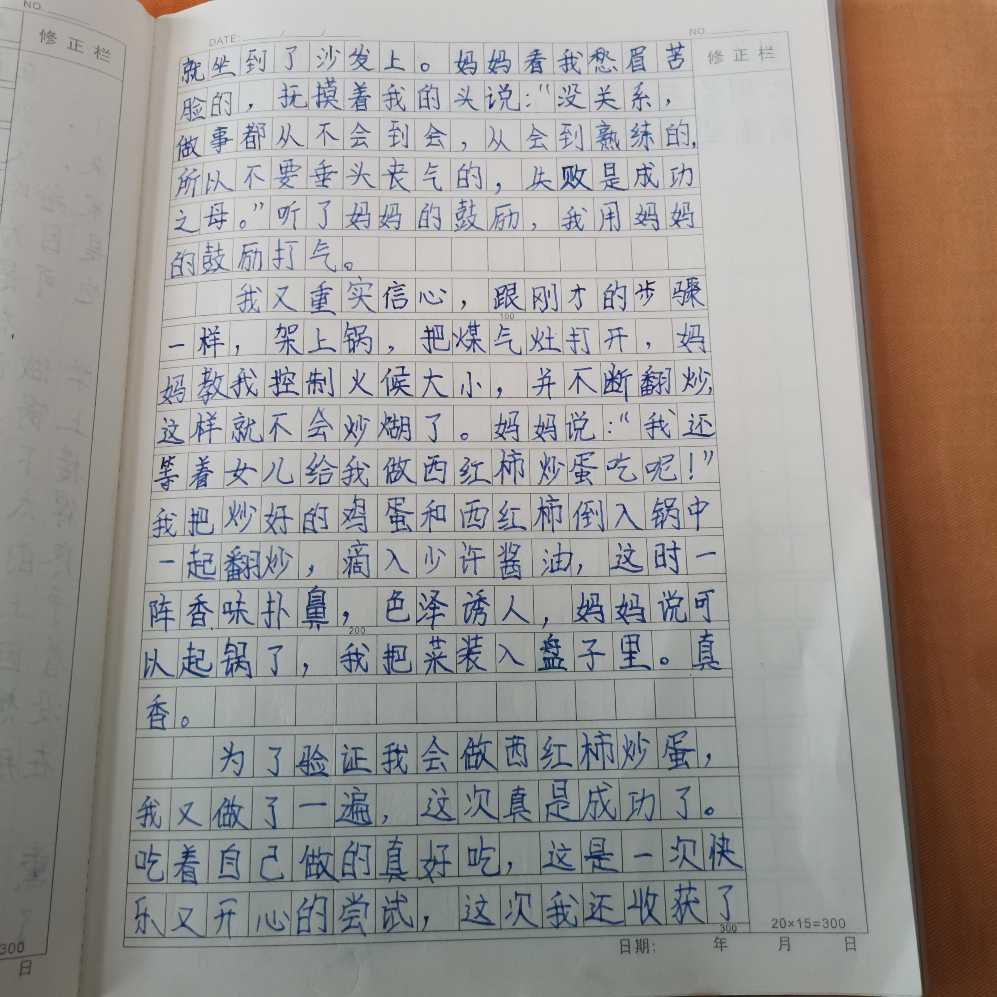 NO.
修正栏
DATE / /
NO
修正栏
就坐到了沙发上。妈妈看我愁眉苦
脸的，抚摸着我的头说：“没关系，
做事都从不会到会，从会到熟练的，
所以不要垂头丧气的，失败是成功
之母。”听了妈妈的鼓励，我用妈妈
的鼓励打气。
我又重实信心，跟刚才的步骤
100
一样，架上锅，把煤气灶打开，妈
妈教我控制火候大小，并不断翻炒，
这样就不会炒糊了。妈妈说：“我还
等着女儿给我做西红柿炒蛋吃呢！”
我把炒好的鸡蛋和西红柿倒入锅中
一起翻炒，滴入少许酱油，这时一
阵香味扑鼻，色泽诱人，妈妈说可
200
以起锅了，我把菜装入盘子里。真
香。
为了验证我会做西红柿炒蛋，
我又做了一遍，这次真是成功了。
吃着自己做的真好吃，这是一次快
乐又开心的尝试，这次我还收获了
300
20×15=300
日期： 年 月 日
300
日